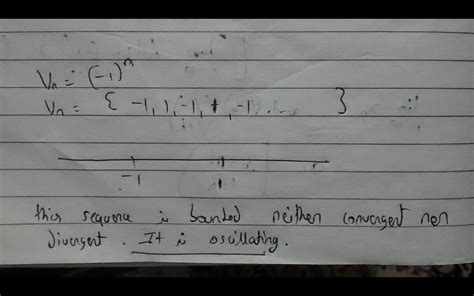 Vn = (-1)^n
Vn = { -1, 1, -1, 1, -1 ... }
-1 1
this sequence is bounded neither convergent nor
divergent. It is oscillating.